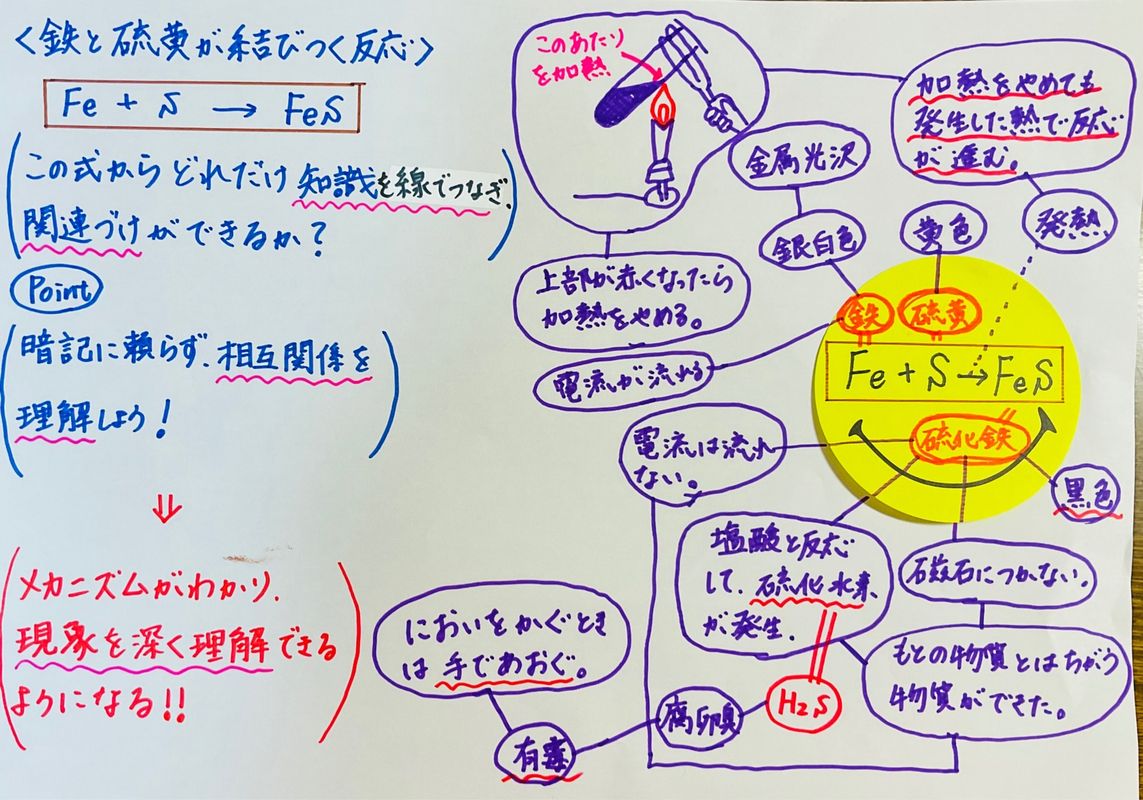 <鉄と硫黄が結びつく反応>
Fe + S → FeS
(この式からどれだけ知識を線でつなぎ、
関連づけができるか?)
Point
(暗記に頼らず、相互関係を
理解しよう!)
⇓
(メカニズムがわかり、
現象を深く理解できる
ようになる!!)
このあたり
を加熱
加熱をやめても
発生した熱で反応
が進む。
金属光沢
銀白色
黄色
発熱
上部が赤くなったら
加熱をやめる。
電流が流れる
鉄
硫黄
Fe + S → FeS
硫化鉄
電流は流れ
ない。
黒色
塩酸と反応
して、硫化水素
が発生.
磁石につかない。
もとの物質とはちがう
物質ができた。
H₂S
腐卵臭
有毒
においをかぐとき
は手であおぐ。